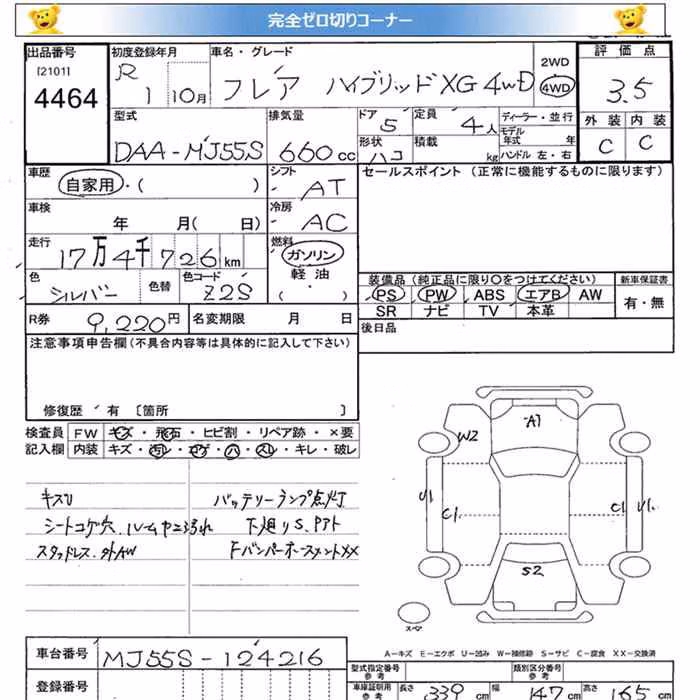 完全ゼロ切りコーナー
出品番号 初度登録年月 車名・グレード 2WD 評価点
[2101] R フレア ハイブリッドXG 4WD 4WD 3.5
4464 1 10月
型式 排気量 ドア 定員 ディーラー・並行 外装 内装
5 4人 モデル年式 年
DAA-MJ55S 660cc 形状 積載 ハンドル 左・右 C C
ハコ kg
車歴 シフト セールスポイント (正常に機能するものに限ります)
自家用・( ) AT
車検 冷房
年 月( 日) AC
走行 燃料
17万4千726km ガソリン
色 色替 色コード 軽油 装備品 (純正品に限り〇をつけてください) 新車保証書
シルバー Z2S ( ・ ) PS PW ABS エアB AW 有・無
R券 9,220円 名変期限 月 日 SR ナビ TV 本革
注意事項申告欄 (不具合内容等は具体的に記入して下さい) 後日品
修復歴 有 〔箇所 〕
検査員 FW キズ・飛石・ヒビ割・リペア跡・×要
記入欄 内装 キズ・汚レ・コゲ・穴・スレ・キレ・破レ
A1
W2
キズU バッテリーランプ点灯 U1 C1 C1 U1
シートコゲ穴、ルームヤニ汚れ 下廻りS、Pアト
スタッドレス、外AW FバンパーホースメントXX
S2
スペア
A-キズ E-エクボ U-凹み W-補修跡 S-サビ C-腐食 XX-交換済
車台番号 MJ55S-124216 型式指定番号 参考 類別区分番号 参考
登録番号 車庫証明用 参考 長さ 339cm 幅 147cm 高さ 165cm